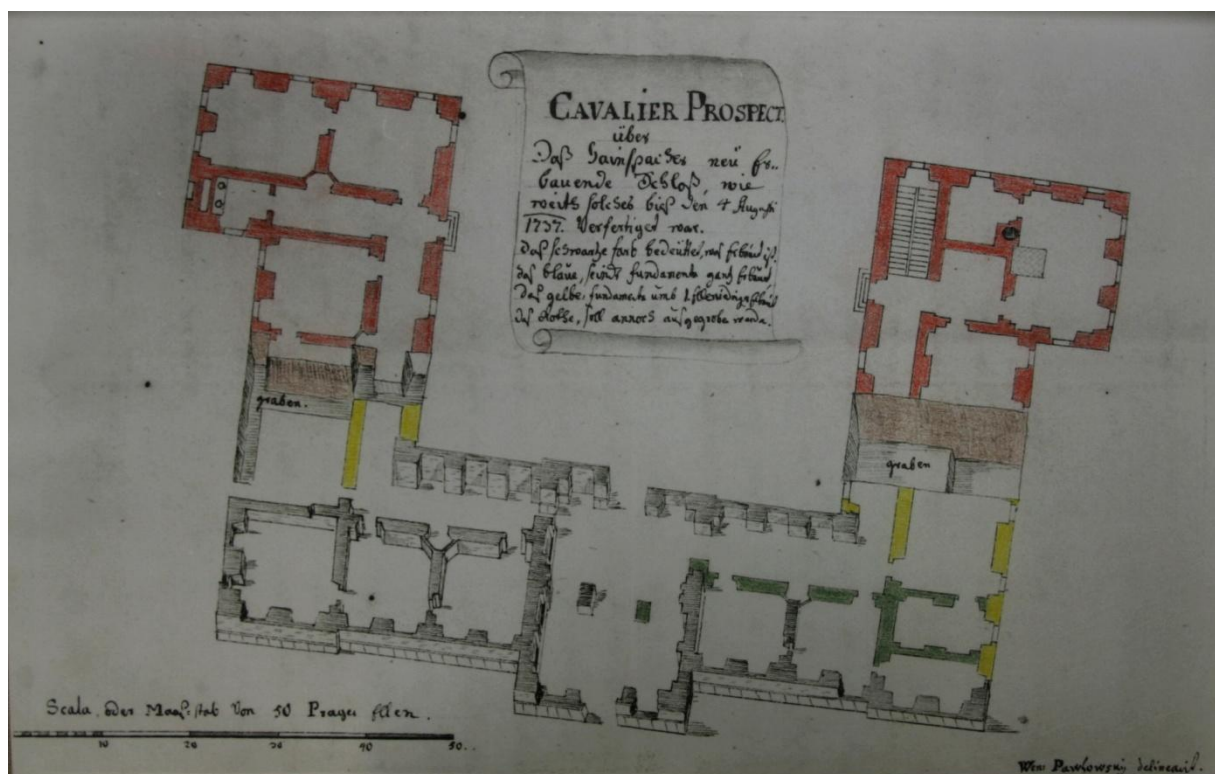 CAVALIER PROSPECT.
über
Daß Hainspacher neü Er-
bauende Schloß, wie
weith solches biß den 4 Augusti
1737. Verfertiget war.
Daß schwartze farb bedeüttet, was Erbaut ist,
daß blaue, seind fundamenta gantz Erbaut,
Daß gelbe, fundamenta umb 1
das Rothe, soll annoch außgegrabe werde.
graben.
graben
Scala oder Maaß-stab Von 50 Prager Ellen.
10 20 30 40 50.
Wen: Pawlowskÿ delineavit.